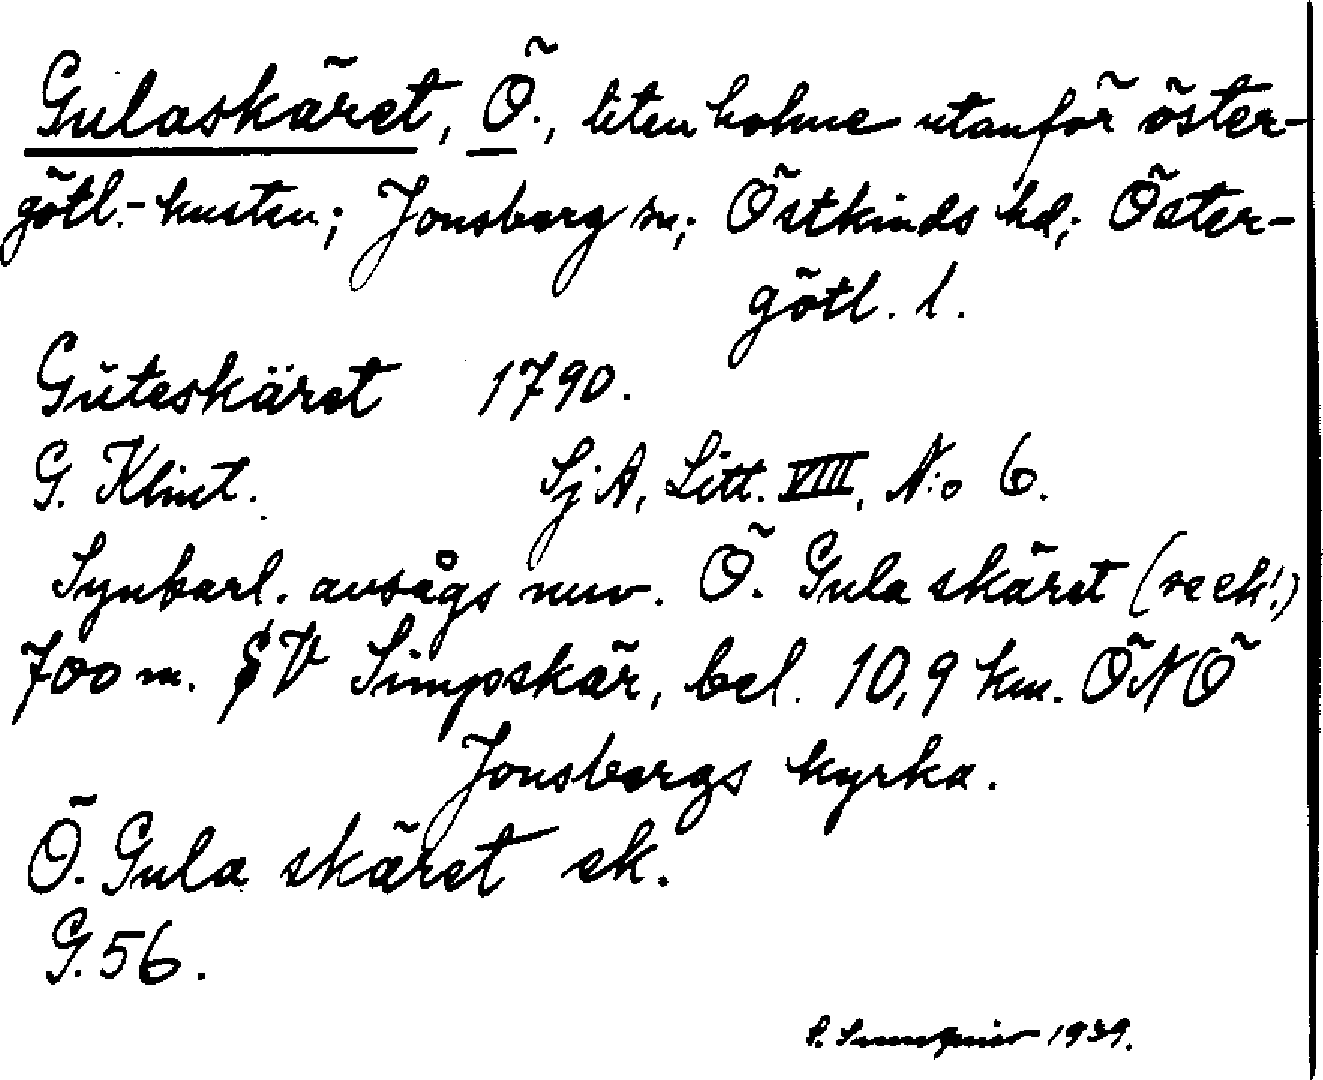 Gulaskäret, Ö., liten holme utanför öster-
götl.-kusten; Jonsberg sn; Östkinds hd; Öster-
götl. l.
Güteskäret 1790.
G. Klint. SjA, Litt. VIII, N:o 6.
Synbarl. avsågs nuv. Ö. Gula skäret (rech!)
700 m. SV Simpskär, bel. 10,9 km. ÖNÖ
Jonsbergs kyrka.
Ö. Gula skäret ek.
G.56.
1939.